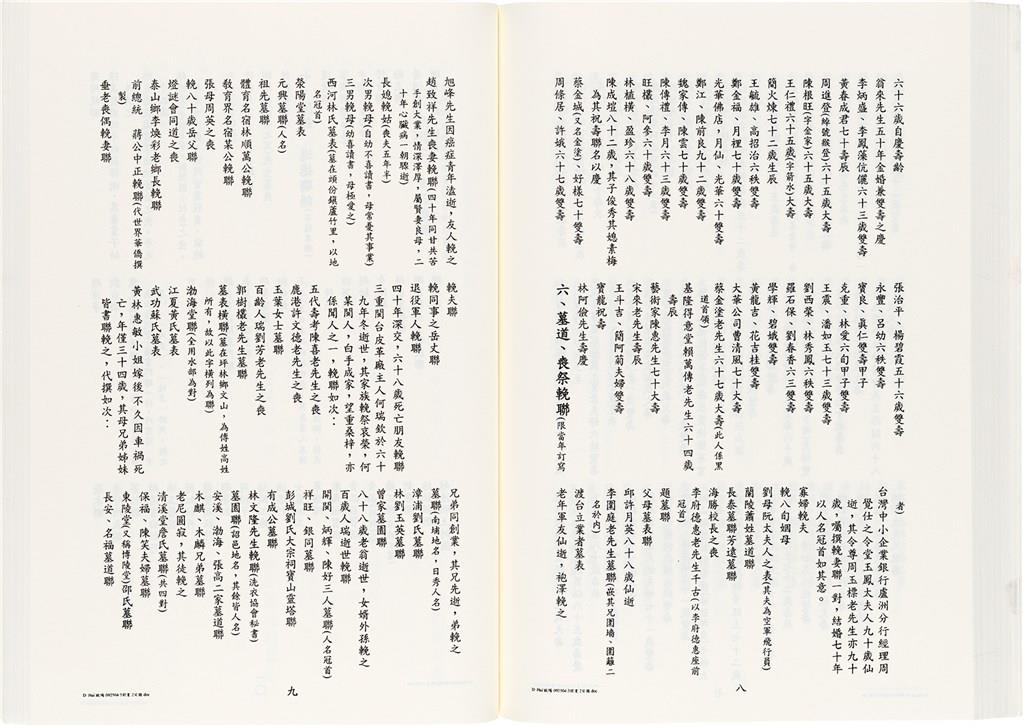 六十六歲自慶壽齡
翁來先生五十年金婚兼雙壽之慶
李炳盛、李鳳藻伉儷六十三歲雙壽
黃春成君七十壽辰
周進登(綽號緞發)六十五歲大壽
陳根旺(字金家)六十五歲大壽
王仁禮六十五歲(字箭水)大壽
簡火煉七十二歲生辰
王毓雄、高招治六秩雙壽
鄭金福、月裡七十歲雙壽
光華佛店，月仙、光華六十雙壽
鄭江、陳前良九十二歲雙壽
魏家傳、陳雲七十歲雙壽
陳傳禮、李月六十三歲雙壽
旺欉、阿參六十歲雙壽
林植橫、盈珍六十八歲雙壽
陳成塭八十二歲，其子俊秀其媳素梅
為其祝壽聯名以慶
蔡金城(又名金塗)、好樣七十雙壽
周條居、許娥六十七歲雙壽
張治平、楊碧霞五十六歲雙壽
永豐、呂幼六秩雙壽
寶良、眞仁雙壽甲子
克重、林愛六旬甲子雙壽
王震、潘如玉七十三歲雙壽
劉西榮、林秀鳳六秩雙壽
羅石保、劉春香六三雙壽
學輝、碧娥雙壽
黃龍吉、花吉桂雙壽
大華公司曹清風七十大壽
蔡金塗老先生六十七歲大壽(此人係黑
道首領)
基隆得意堂賴萬傳老先生六十四歲
壽辰
藝術家陳惠先生七十大壽
宋來老先生壽辰
王斗吉、簡阿菊夫婦雙壽
寶龍祝壽
林阿儉先生壽慶
六、墓道、喪祭輓聯(限當年訂寫
者)
台灣中小企業銀行盧洲分行經理周
覺任之令堂玉鳳太夫人九十歲仙
逝，其令尊周玉標老先生亦九十
歲，囑撰輓妻聯一對，結婚七十年
以人名冠首如其意。
寡婦輓夫
輓八旬姻母
劉母阮太夫人之表(其夫為空軍飛行員)
蘭陵蕭姓墓道聯
長泰墓聯芳遠墓聯
海勝校長之喪
李府德惠老先生千古(以李府德惠座前
冠首)
題墓聯
父母墓表聯
邱許月英八十八歲仙逝
李圍庭老先生墓聯(嵌其兄圍墻、圍籬二
名於內)
渡台立業者墓表
老年軍友仙逝，袍澤輓之
八
旭峰先生因癌症青年溘逝，友人輓之
趙致祥先生喪妻輓聯(四十年同甘共苦
手創大業，情深澤厚，屬賢妻良母，二
十年心臟病一朝驟逝)
長媳輓姑(喪夫五年半)
次男輓母(自幼不喜讀書，母常憂其事業)
三男輓母(幼喜讀書，母極愛之)
西河林氏墓表(墓在頭份鎮蘆竹里，以地
名冠首)
榮陽堂墓表
元興墓聯(人名)
祖先墓聯
體育名宿林順萬公輓聯
敎育界名宿某公輓聯
張母周英之喪
輓八十歲岳父聯
燈謎會同道之喪
泰山鄉李煥彩老鄉長輓聯
前總統　蔣公中正輓聯(代世界華僑撰
製)
垂老喪偶輓妻聯
輓夫聯
輓同事之岳丈聯
退役軍人輓聯
四十年深交，六十八歲死亡朋友輓聯
三重閣台皮革廠主人何瑞欽於六十
九年冬逝世，其家族輓祭哀榮，何
某閩人，白手成家，望重桑梓，亦
係閩人之一，輓聯如次：
五代壽考陳喜老先生之喪
鹿港許文德老先生之喪
玉葉女士墓聯
百齡人瑞劉芳老先生之喪
郭樹欉老先生墓聯
墓表橫聯(墓在坪林鄉文山，為傅姓高姓
所有，故以此字橫列為聯)
渤海堂聯(全用水部為對)
江夏黃氏墓表
武功蘇氏墓表
黃林惠敏小姐嫁後不久因車禍死
亡，年僅三十四歲，其母兄弟姊妹
皆書聯輓之，代撰如次：
兄弟同創業，其兄先逝，弟輓之
墓聯(南埔地名，日秀人名)
漳浦劉氏墓聯
林劉玉英墓聯
曾家墓園輓聯
八十八歲老翁逝世，女婿外孫輓之
百歲人瑞逝世輓聯
開閔、炳輝、陳好三人墓聯(人名冠首)
祥旺、銀同墓聯
彭城劉氏大宗祠寶山靈塔聯
有成公墓聯
林文隆先生輓聯(洗衣協會秘書)
墓園聯(詔邑地名，其餘皆人名)
安溪、渤海、張高二家墓道聯
木麒、木麟兄弟墓聯
老尼圓寂，其徒輓之
清溪堂詹氏墓聯(共四對)
保福、陳笑夫婦墓聯
東陵堂(又稱博陵堂)邵氏墓聯
長安、名福墓道聯
九